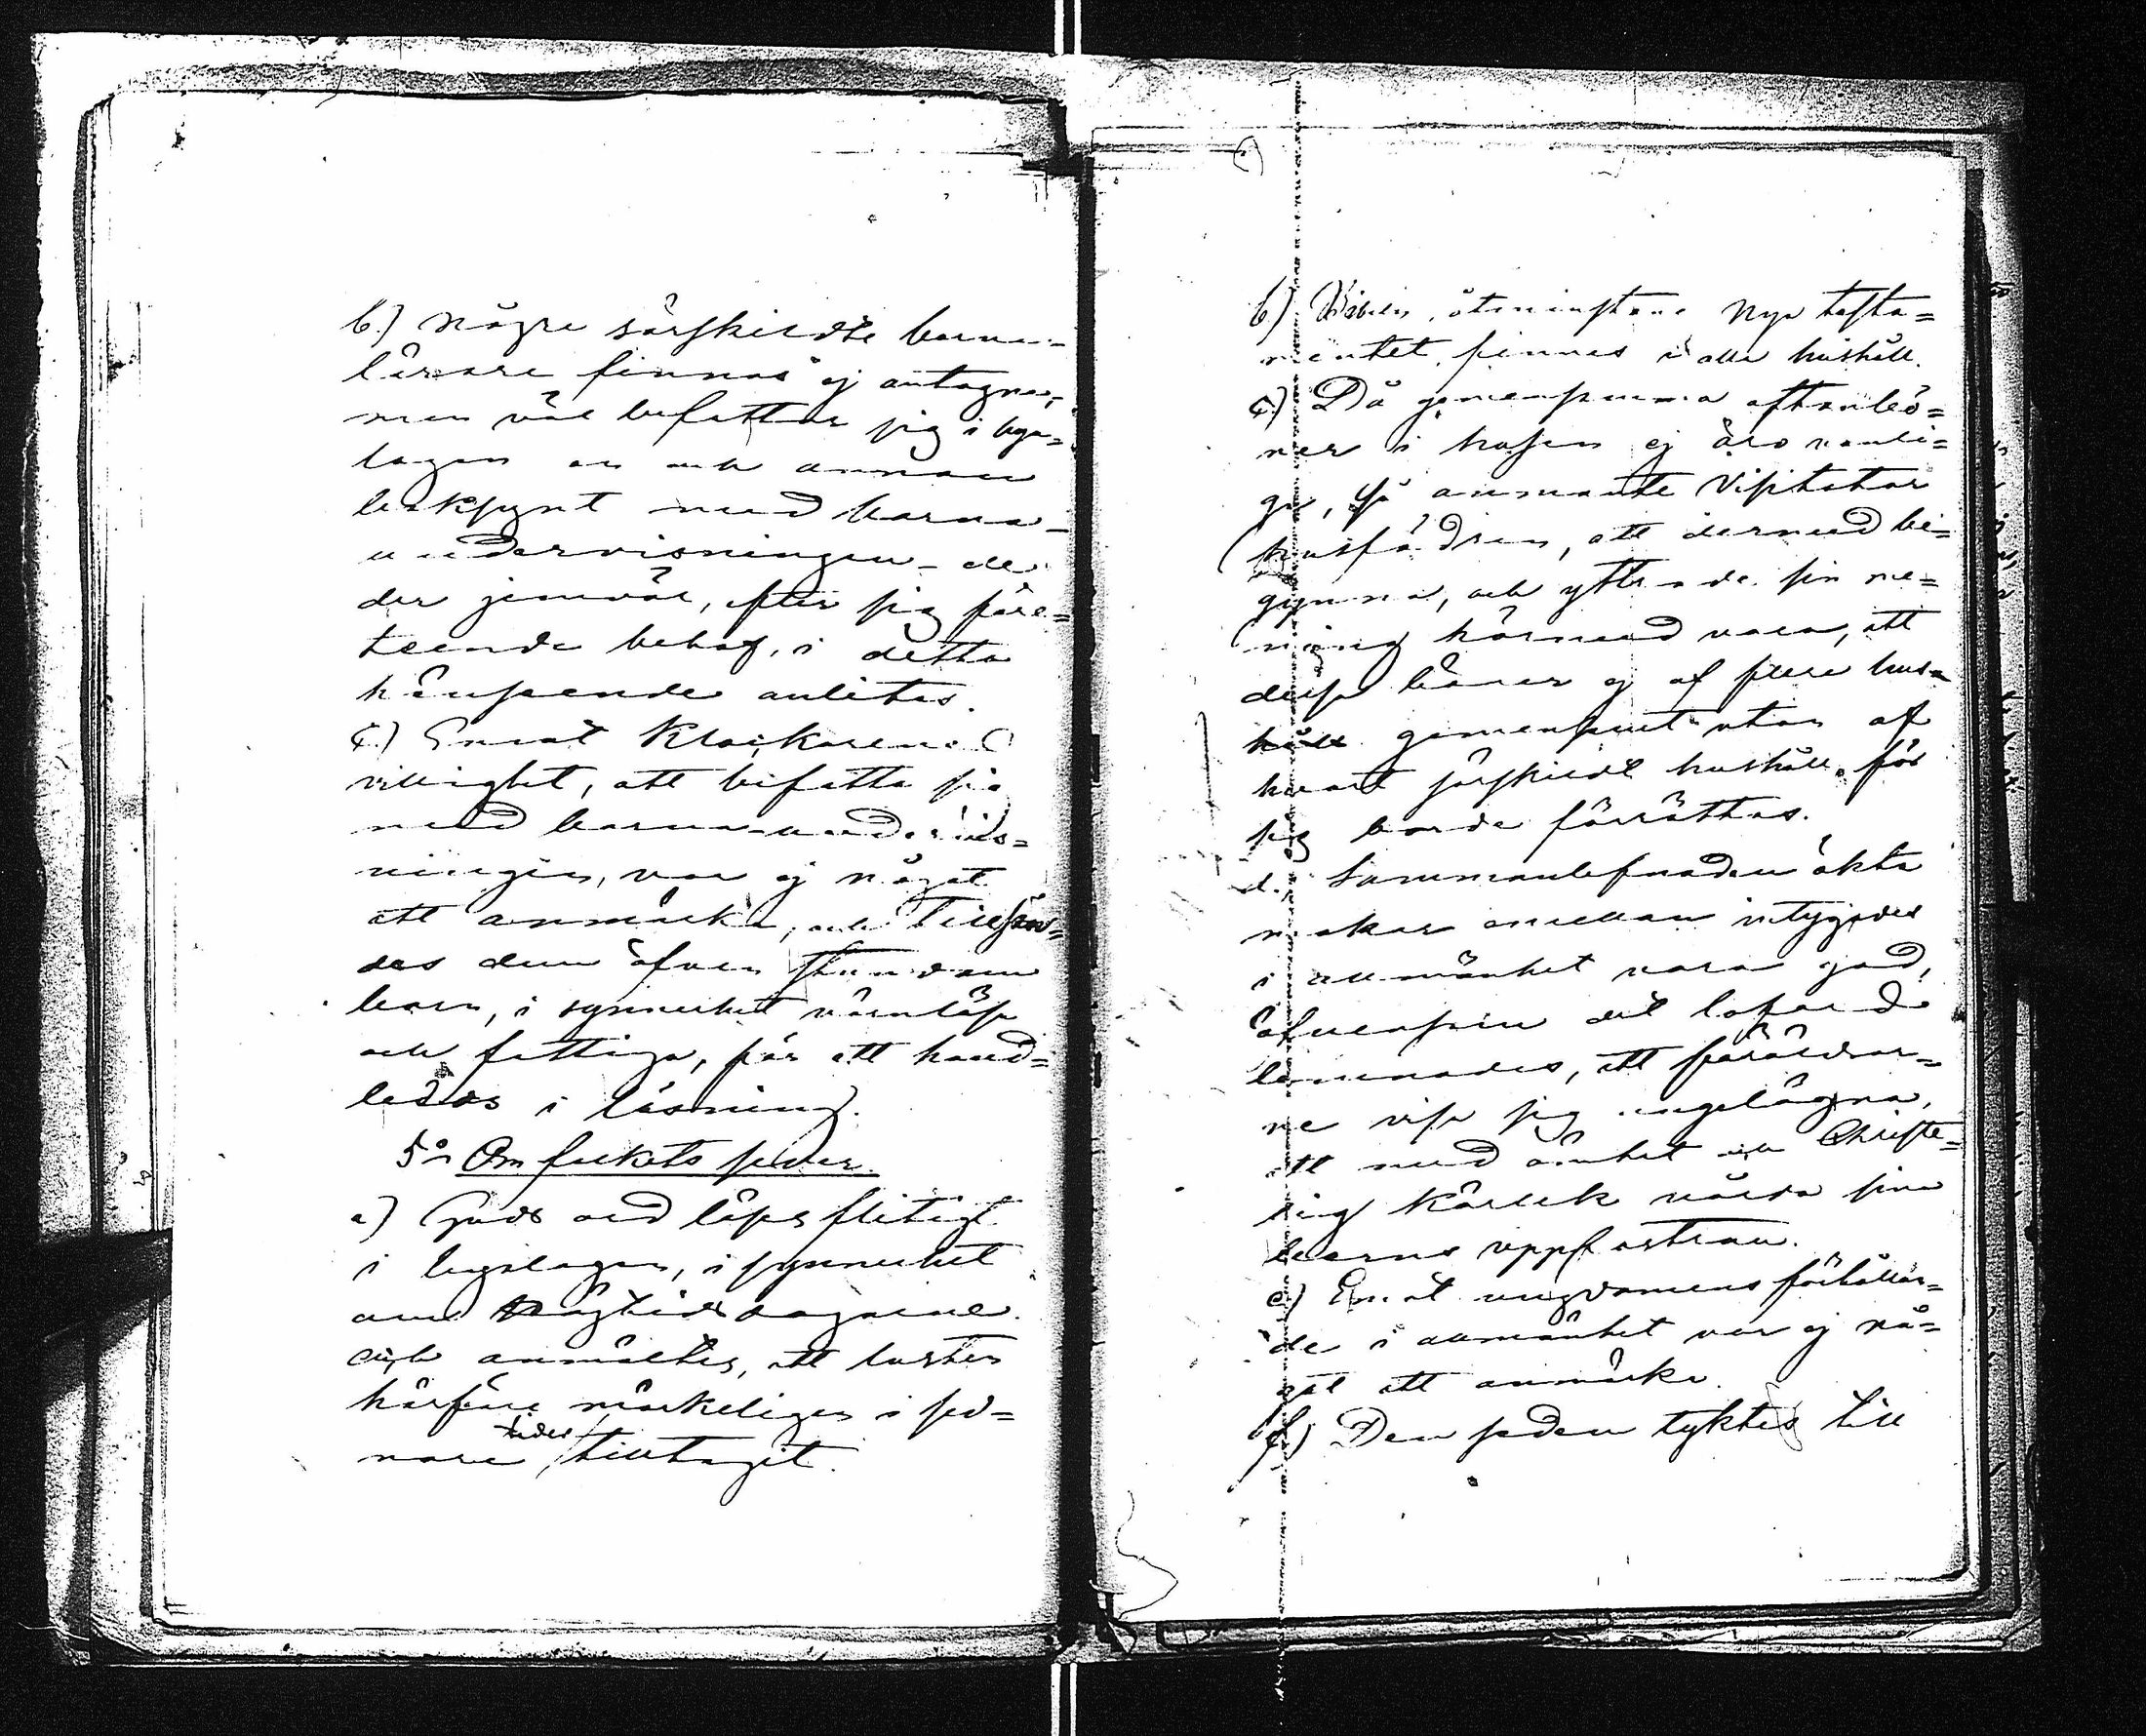 b.) några särskildte barna-
lärare finnas ej antagne,
men väl befattar sig i bya-
lagen en och annan
läskynt med barna-
undervisningen - de
der jemväl, efter sig före-
teende behof, i detta
hänseende anlitas.
c.) Emot Klockarens
villighet, att befatta sig
med barna-undervis-
ningen, var ej något
att anmärka, och tillsän-
des dem äfven stundom
barn, i synnerhet värnlösa
och fattiga, för att hand-
ledas i läsning.
5:o Om folkets seder.
a) Guds ord läses flitigt
i byalagen, i synnerhet
om Högtidsdagarne.
och anmältes, att lusten
härföre märkeligen i sed-
nare tider tilltagit.
b) Bibeln, åtminstone Nya testa=
mentet, finnes i alla hushåll.
c) Då gemensamma aftonbö=
ner i husen ej äro vanli=
ga, så anmante Visitator
husfädren, att dermed be=
gynna, och yttrade sin me=
ning härmed vara, att
desse böner ej af flere hus=
håll gemensamt utan af
hvart särskildt hushåll för
sig borde förrättas.
d. Sammanlefnaden äkta
makar emellan intygades
i allmänhet vara god,
äfvensom det loford
lemnades, att föräldrar=
ne visa sig angelägna,
att med ömhet och Christe=
lig kärlek vårda sina
barns uppfostran.
e) Emot ungdomens förhållan=
de i allmänhet var ej nå=
got att anmärka.
f) Den seden tyktes till